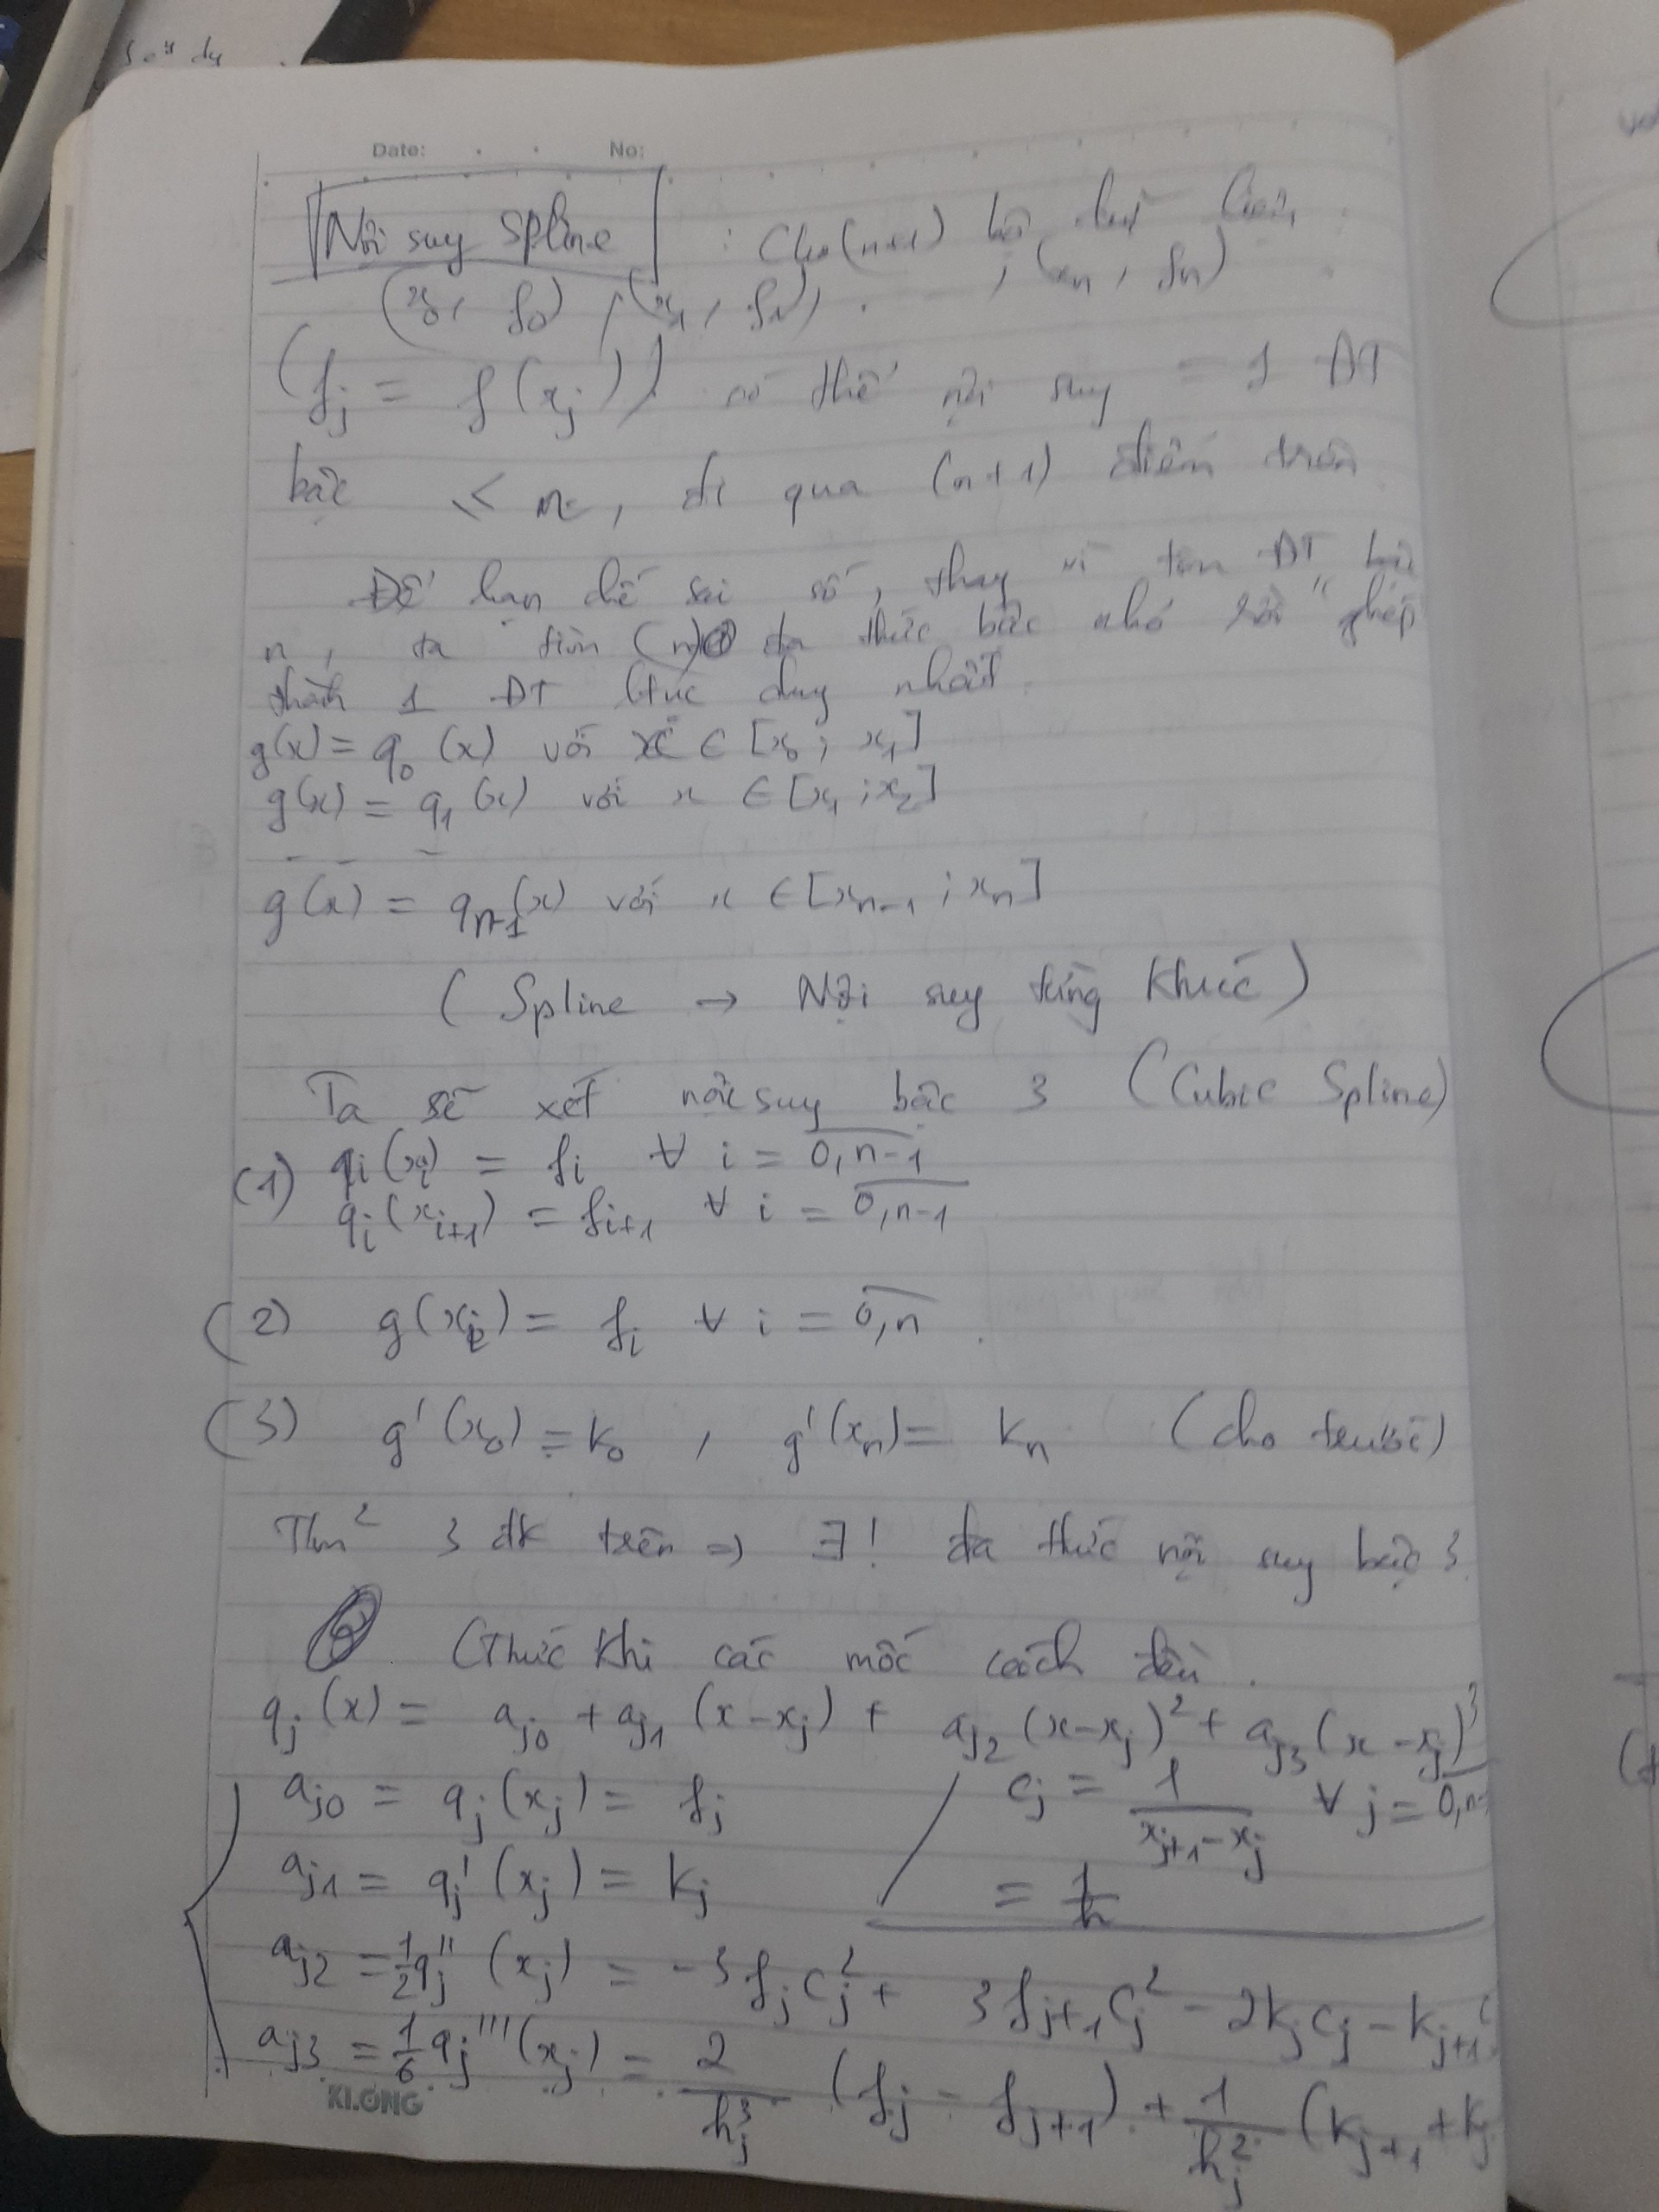 ſ e^y dy
Date: . . No:
Nội suy Spline : Cho (n+1) bộ
(x0, f0), (x1, f1), . . . , (xn, fn)
(fj = f(xj)) có thể nội suy = 1 ĐT
bậc ≤ n, đi qua (n+1) điểm trên
Để hạn chế sai số, thay vì tìm ĐT bậc
n, ta tìm (n) đa thức bậc nhỏ rồi "ghép
thành 1 ĐT duy nhất.
g(x) = q0 (x) với x ∈ [x0 ; x1]
g(x) = q1 (x) với x ∈ [x1 ; x2]
- - -
g(x) = qn-1(x) với x ∈ [xn-1 ; xn]
(Spline → Nội suy từng khúc)
Ta sẽ xét nội suy bậc 3 (Cubic Spline)
(1) qi(xi) = fi ∀ i = 0,n-1
qi(xi+1) = fi+1 ∀ i = 0,n-1
(2) g(xi) = fi ∀ i = 0,n
(3) g'(x0) = k0 , g'(xn) = kn (cho trước)
Thm² 3 đk trên => ∃! đa thức nội suy bậc 3.
CThức khi các mốc cách đều.
qj(x) = aj0 + aj1 (x-xj) + aj2 (x-xj)² + aj3 (x-xj)³
aj0 = qj(xj) = fj
cj = 1/(xj+1 - xj) ∀ j = 0,n-
aj1 = qj'(xj) = kj
= 1/h
aj2 = 1/2 qj'' (xj) = -3fjcj² + 3fj+1cj² - 2kjcj - kj+1c
aj3 = 1/6 qj'''(xj) = 2/hj³ (fj - fj+1) + 1/hj² (kj+1 + kj
KLONG